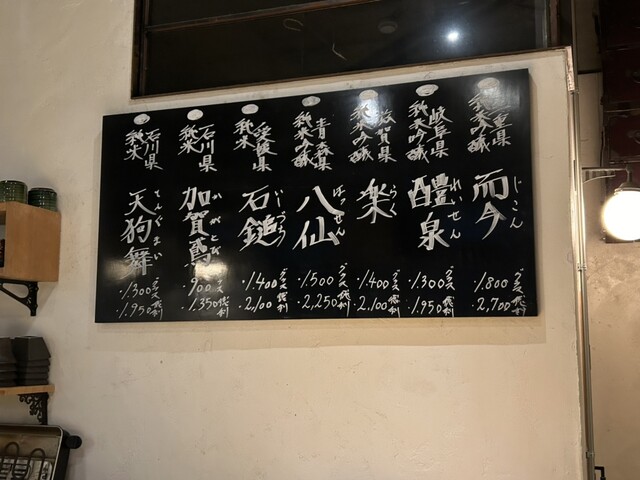 三重県
純米吟醸
而今
じこん
グラス
・1,800
徳利
・2,700
岐阜県
純米吟醸
醴泉
れいせん
グラス
・1,300
徳利
・1,950
滋賀県
純米吟醸
楽
らく
グラス
・1,400
徳利
・2,100
青森県
純米吟醸
八仙
はっせん
グラス
・1,500
徳利
・2,250
愛媛県
純米
石鎚
いしづち
グラス
・1,400
徳利
・2,100
石川県
純米
加賀鳶
かがとび
グラス
・900
徳利
・1,350
石川県
純米
天狗舞
てんぐまい
グラス
・1,300
徳利
・1,950